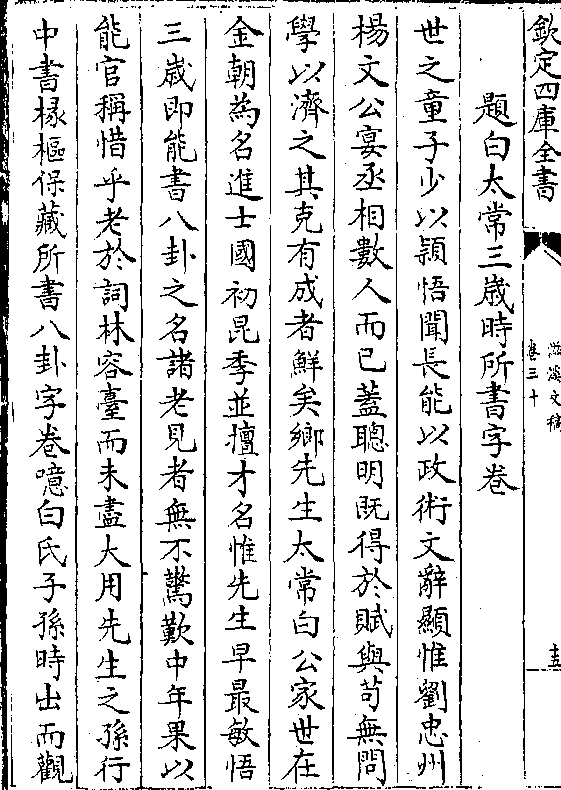 欽定四庫全書
滋溪文稿
卷三十
十五
題白太常三歲時所書字卷
世之童子少以頴悟聞長能以政術文辭顯惟劉忠州
楊文公宴丞相數人而已蓋聰明既得於賦與苟無問
學以濟之其克有成者鮮矣鄉先生太常白公家世在
金朝為名進士國初昆季並擅才名惟先生早最敏悟
三歲即能書八卦之名諸老見者無不驚歎中年果以
能官稱惜乎老於詞林容臺而未盡大用先生之孫行
中書椽樞保藏所書八卦字卷噫白氏子孫時出而觀